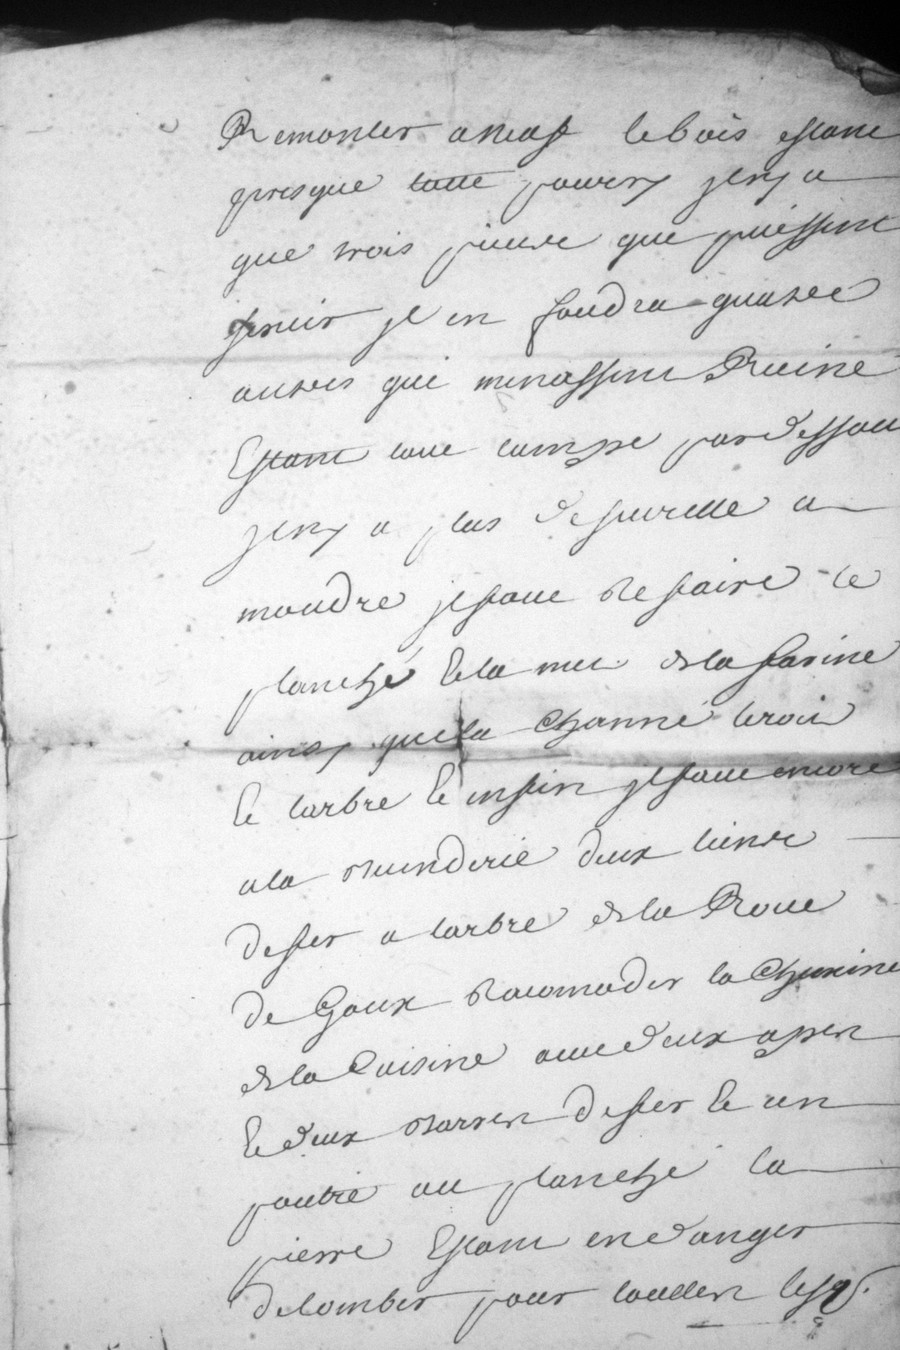 Remonter aneuf lebois estant
presque tout poury jlny a
que trois piesse que puissent
servir jl en faudra quatre
autres qui menassent Ruine
Estant tout rompu pardessou
jlny a plus de seurette a
moudre jlfaut Refaire le
planché Et la met dela farine
ainsy quela
Et larbre Et enfin jlfaut encore
ala deux liens
defer a larbre dela Roue
de Racomoder la Cheminé
dela Cuisine avec deux
Et deux barres defer Et un
poutre au planché la
pierre Estant endanger
detomber pour